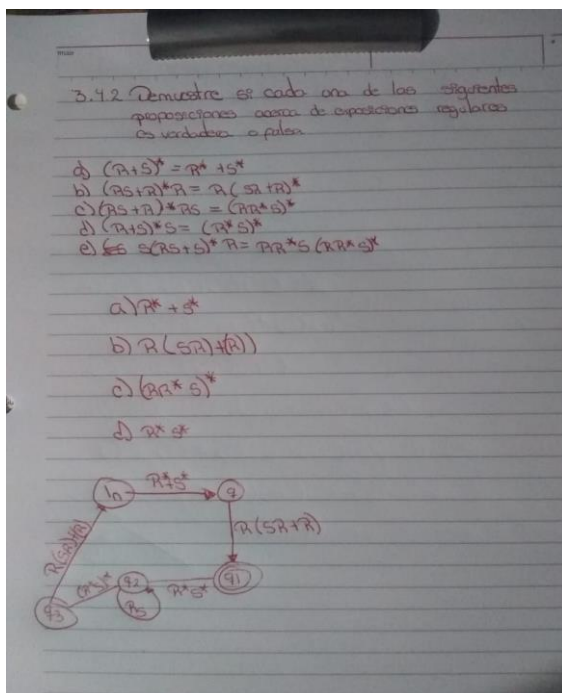 3.4.2 Demuestre si cada una de las siguientes
proposiciones acerca de expresiones regulares
es verdadera o falsa
a) (R+S)* = R* + S*
b) (RS+R)*R = R(SR+R)*
c) (RS+R)*RS = (RR*S)*
d) (R+S)*S = (R*S)*
e) S(RS+S)*R = RR*S(RR*S)*
a) R* + S*
b) R(SR)+(R))
c) (RR* S)*
d) R* S*
In R*+S* q
R(SR)+(R) R(SR+R)
(R*S)* q2 R*S* q1
q3 RS